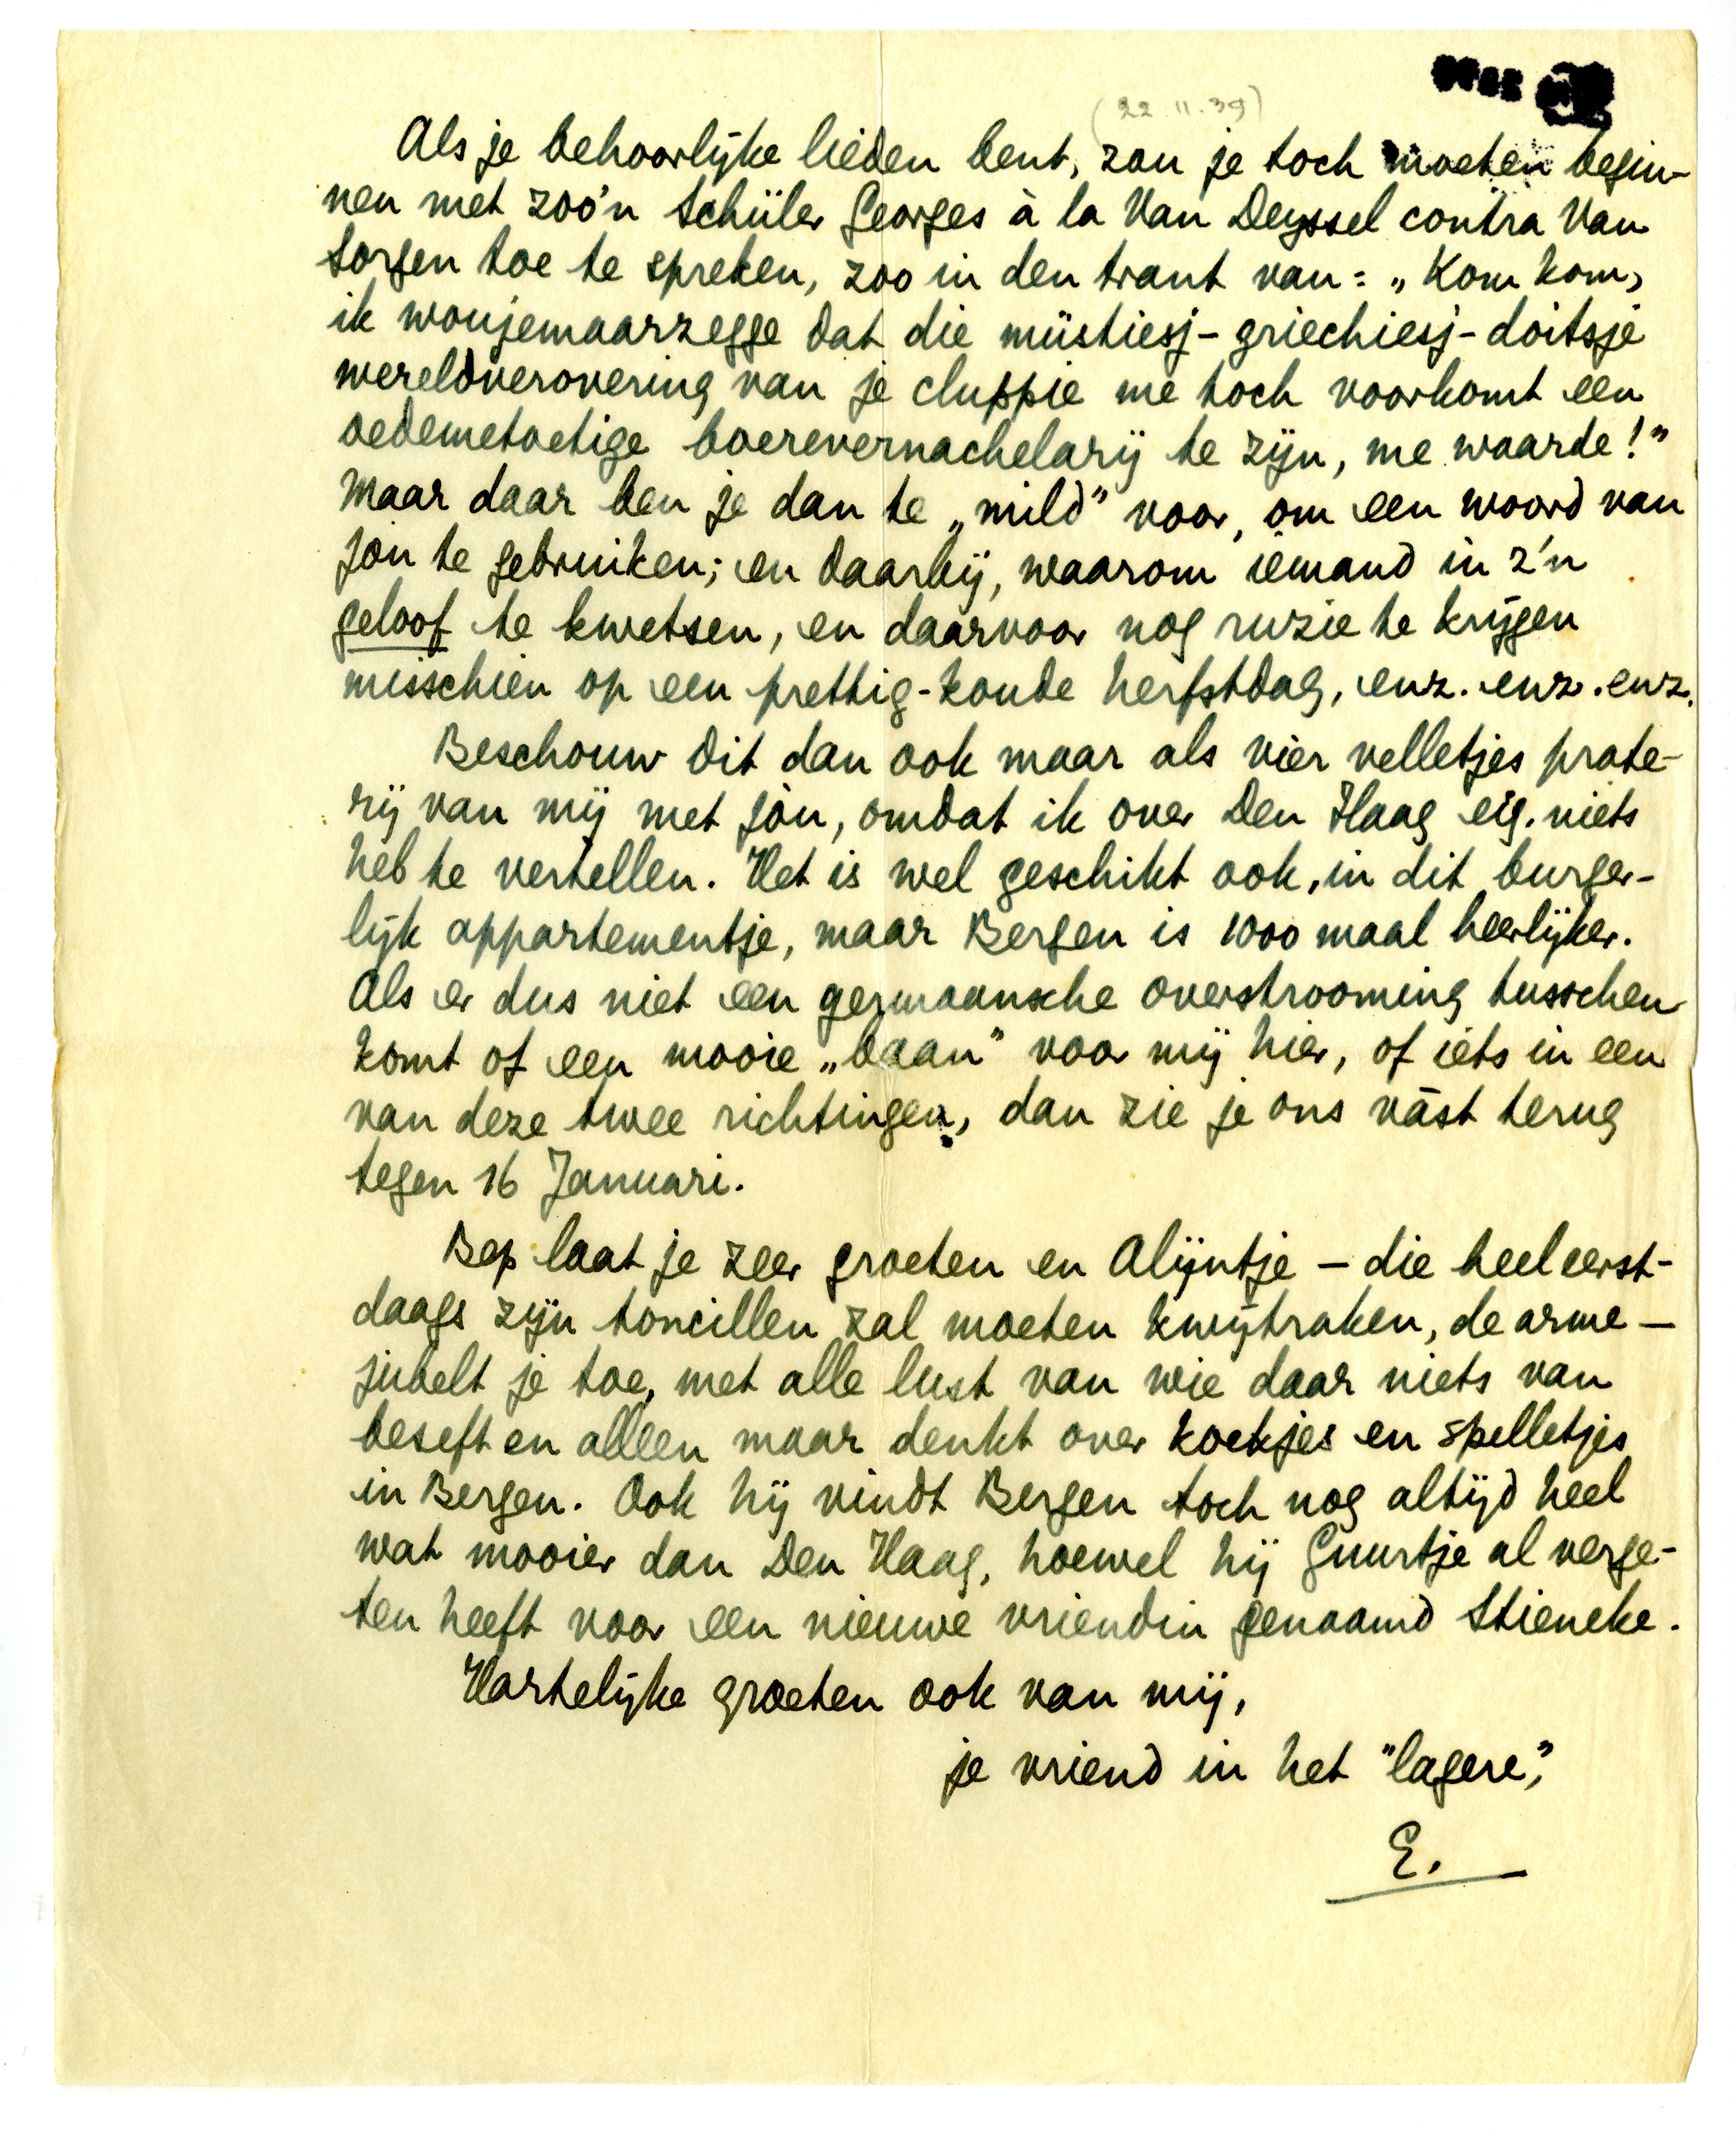 (22.11.39)
Als je behoorlijke lieden bent, zou je toch moeten begin-
nen met zoo'n Schüler Georges à la Van Deyssel contra Van
Sorgen toe te spreken, zoo in den trant van: „Kom kom,
ik woujemaarzegge dat die müstiesj-griechiesj-doitsje
wereldverovering van je cluppie me toch voorkomt een
oedemetoetige boerevernachelarij te zijn, me waarde!”
Maar daar ben je dan te „mild” voor, om een woord van
jou te gebruiken; en daarbij, waarom iemand in z'n
geloof te kwetsen, en daarvoor nog ruzie te krijgen
misschien op een prettig-koude herfstdag, enz. enz. enz.
Beschouw dit dan ook maar als vier velletjes prate-
rij van mij met jòu, omdat ik over Den Haag eig. niets
heb te vertellen. Het is wel geschikt ook, in dit burger-
lijk appartementje, maar Bergen is 1000 maal heerlijker.
Als er dus niet een germaansche overstrooming tusschen
komt of een mooie „baan” voor mij hier, of iets in een
van deze twee richtingen, dan zie je ons vàst terug
tegen 16 Januari.
Bep laat je zeer groeten en Alijntje – die heel eerst-
daags zijn toncillen zal moeten kwijtraken, de arme –
jubelt je toe, met alle lust van wie daar niets van
beseft en alleen maar denkt over koekjes en spelletjes
in Bergen. Ook hij vindt Bergen toch nog altijd heel
wat mooier dan Den Haag, hoewel hij Guurtje al verge-
ten heeft voor een nieuwe vriendin genaamd Stieneke.
Hartelijke groeten ook van mij,
je vriend in het "lagere",
E.